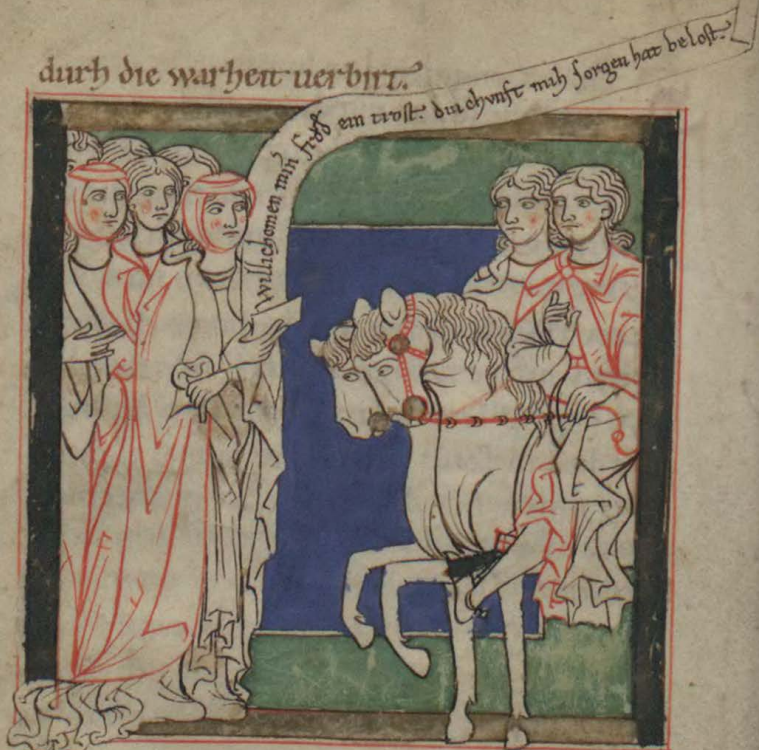 durh die warheit uerbirt.
willichomen min frŏd ein trost. din chvnft mih sorgen hat belost.